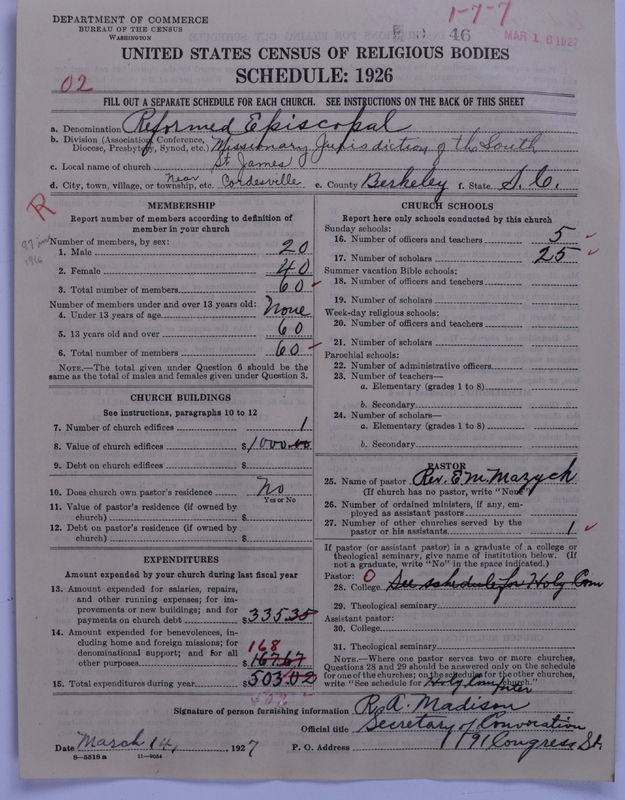 DEPARTMENT OF COMMERCE
BUREAU OF THE CENSUS
WASHINGTON
1-7-7
46
MAR 16 1927
UNITED STATES CENSUS OF RELIGIOUS BODIES
SCHEDULE: 1926
02
FILL OUT A SEPARATE SCHEDULE FOR EACH CHURCH. SEE INSTRUCTIONS ON THE BACK OF THIS SHEET
a. Denomination Reformed Episcopal
b. Division (Association, Conference, Diocese, Presbytery, Synod, etc.) Missionary Jurisdiction of the South
c. Local name of church St James
d. City, town, village, or township, etc. Near Cordesville e. County Berkeley f. State S. C.
R
MEMBERSHIP
Report number of members according to definition of
member in your church
Number of members, by sex:
1. Male 20
2. Female 40
3. Total number of members 60
Number of members under and over 13 years old:
4. Under 13 years of age None
5. 13 years old and over 60
6. Total number of members 60
NOTE.—The total given under Question 6 should be
same as the total of males and females given under Question 3.
CHURCH BUILDINGS
See instructions, paragraphs 10 to 12
7. Number of church edifices 1
8. Value of church edifices $1000.00
9. Debt on church edifices $
10. Does church own pastor's residence No
Yes or No
11. Value of pastor's residence (if owned by
church) $
12. Debt on pastor's residence (if owned by
church) $
EXPENDITURES
Amount expended by your church during last fiscal year
13. Amount expended for salaries, repairs,
and other running expenses; for im-
provements or new buildings; and for
payments on church debt $335.35
14. Amount expended for benevolences, in-
cluding home and foreign missions; for
denominational support; and for all 168
other purposes 167.67
15. Total expenditures during year $503.02
$503
CHURCH SCHOOLS
Report here only schools conducted by this church
Sunday schools:
16. Number of officers and teachers 5
17. Number of scholars 25
Summer vacation Bible schools:
18. Number of officers and teachers
19. Number of scholars
Week-day religious schools:
20. Number of officers and teachers
21. Number of scholars
Parochial schools:
22. Number of administrative officers
23. Number of teachers—
a. Elementary (grades 1 to 8)
b. Secondary
24. Number of scholars—
a. Elementary (grades 1 to 8)
b. Secondary
PASTOR
25. Name of pastor Rev. E. M. Mazyck
(If church has no pastor, write "None")
26. Number of ordained ministers, if any, em-
ployed as assistant pastors
27. Number of other churches served by the
pastor or his assistants 1
If pastor (or assistant pastor) is a graduate of a college or
theological seminary, give name of institution below. (If
not a graduate, write "No" in the space indicated.)
Pastor: 0
28. College See schedule for Holy Com
29. Theological seminary
Assistant pastor:
30. College
31. Theological seminary
NOTE.—Where one pastor serves two or more churches,
Questions 28 and 29 should be answered only on the schedule
for one of the churches; on the schedules for the other churches,
write "See schedule for Holy Com forter church."
Signature of person furnishing information R. A. Madison
Official title Secretary of Convocation
Date March 14, 1927 P. O. Address 191 Congress St.
8—5518a 11—9054